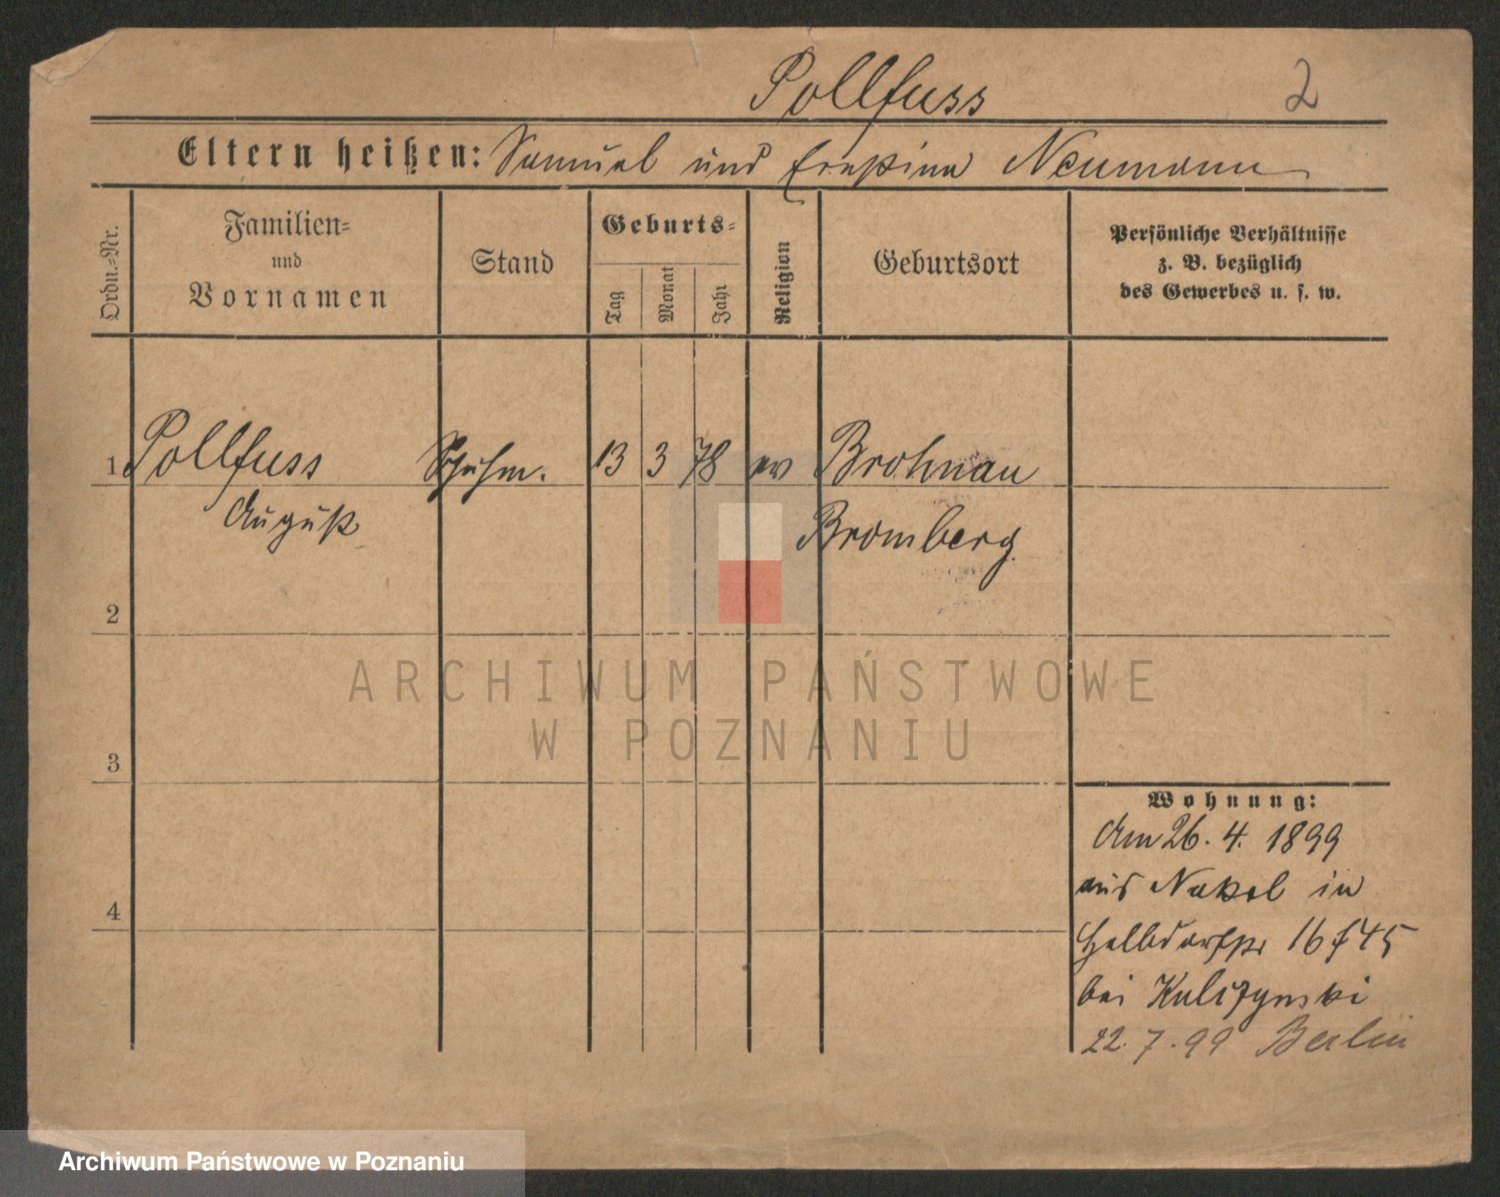 Pollfuss 2
Eltern heißen: Samuel und Ernstine Neumann
Ordn.-Nr.
Familien-
und
Vornamen
Stand
Geburts-
Tag
Monat
Jahr
Religion
Geburtsort
Persönliche Verhältnisse
z. B. bezüglich
des Gewerbes u. s. w.
1 Pollfuss Schuhm. 13 3 78 ev Brohnau
August Bromberg
2
3
4
Wohnung:
Am 26. 4. 1899
aus Nakel in
Halbdorfstr 16
bei Kuliszynski
22. 7. 99 Berlin
ARCHIWUM PAŃSTWOWE
W POZNANIU
Archiwum Państwowe w Poznaniu